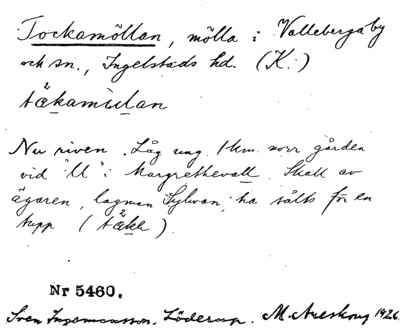 Tockamöllan, mölla i Vallebergaby
och sn., Ingelstads hd. (K.)
täkamulan
Nu riven. Låg ung. 1 km. norr gården
vid "U" i Margrethevall. Skall av
ägaren, lagman Sylvan, ha sålts för en
tupp (täke).
Nr 5460.
Sven Ingemansson, Löderup. M. Areskog 1926.